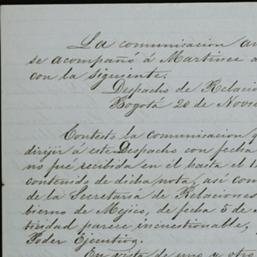 La comunicacion an
se acompañó á Martinez a
con la siguiente.
Despacho de Relacio
Bogotá 20 de Novie
Contesto la comunicacion q
dirijir á éste Despacho con fecha
no fué recibida en él hasta el 1
contenido de dicha nota, así com
de la Secretaría de Relaciones
bierno de Mejico, de fecha 5 de
tividad parece incuestionable,
Poder Ejecutivo.
En vista de uno y otro